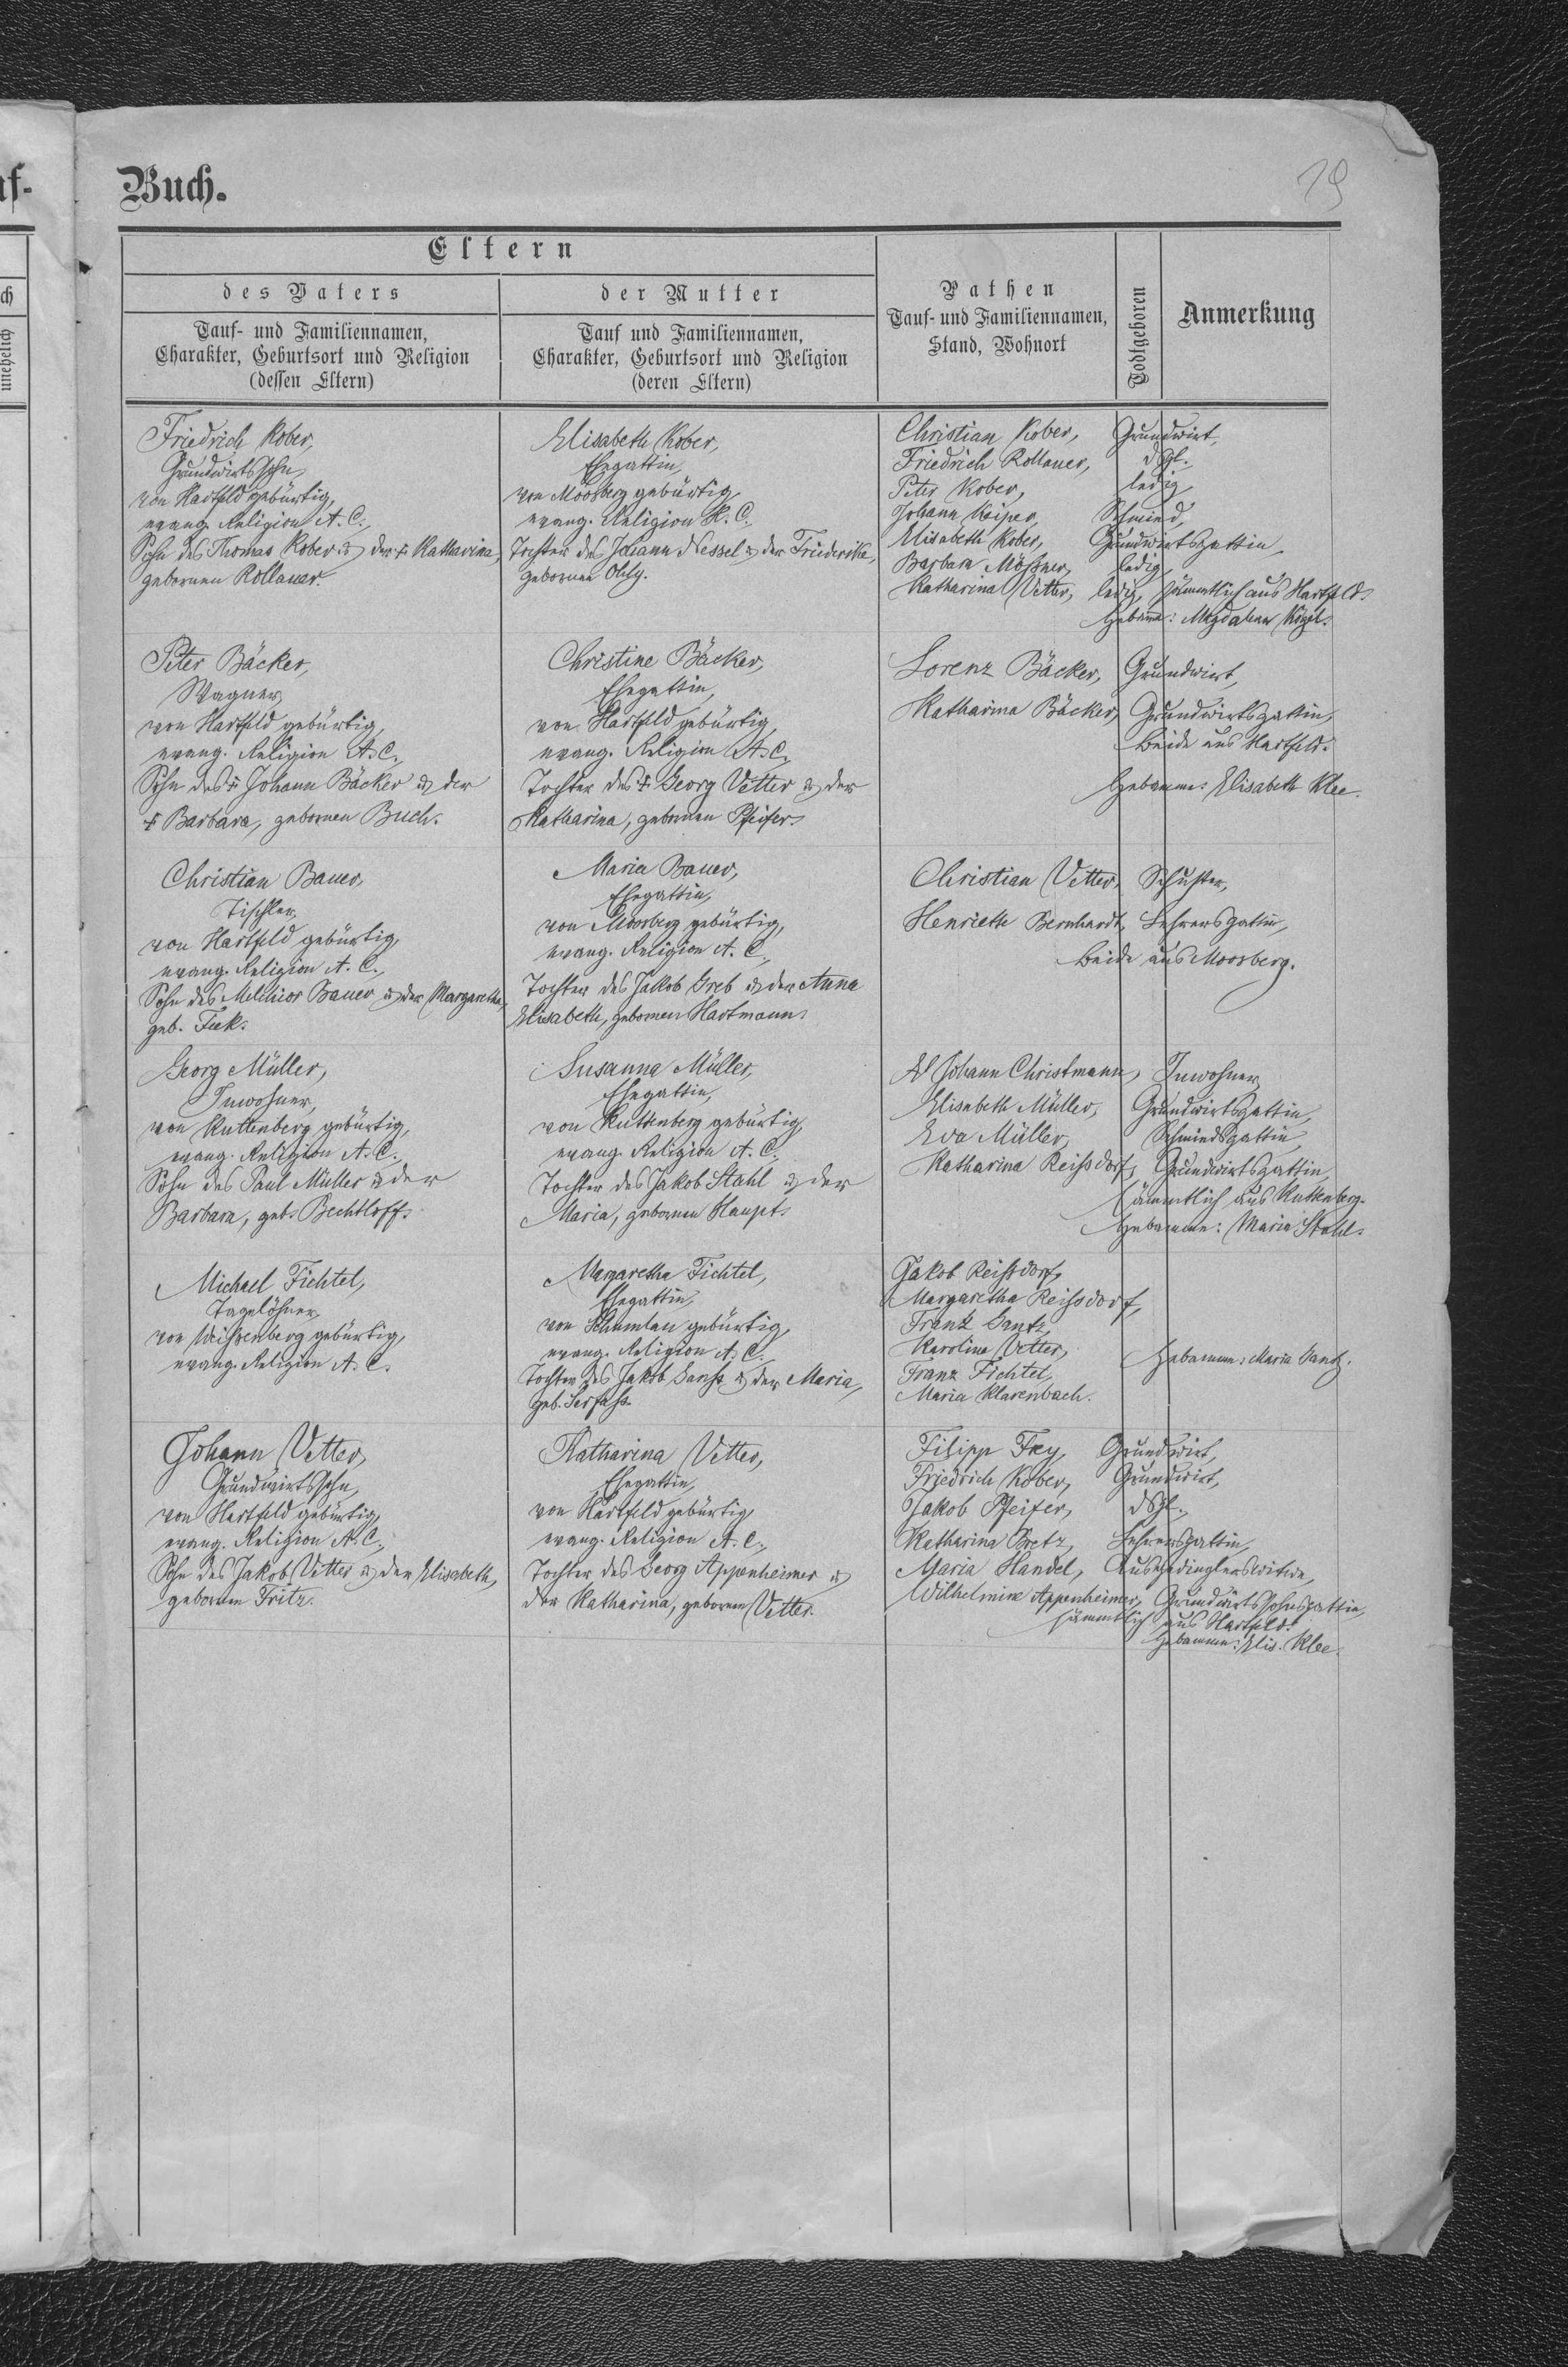 Buch.
19
Eltern
des Vaters
der Mutter
Pathen
Tauf- und Familiennamen,
Stand, Wohnort
Todtgeboren
Anmerkung
Tauf- und Familiennamen,
Charakter, Geburtsort und Religion
(dessen Eltern)
Tauf und Familiennamen,
Charakter, Geburtsort und Religion
(deren Eltern)
ch
unehelich
Friedrich Kober,
Grundwirtssohn,
von Hartfeld gebürtig,
evang. Religion A. C.,
Sohn des Thomas Kober u. der † Katharina,
gebornen Rollauer.
Elisabeth Kober,
Ehegattin,
von Moosberg gebürtig,
evang. Religion H. C.,
Tochter des Johann Nessel u. der Friederike,
gebornen Ohly.
Christian Kober, Grundwirt,
Friedrich Rollauer, dsgl.,
Peter Kober, ledig,
Johann Keiper, Schmied,
Elisabeth Kober, Grundwirtsgattin,
Barbara Mößner, ledig,
Katharina Vetter, ledig, sämmtlich aus Hartfeld.
Hebamme: Magdalena
Peter Bäcker,
Wagner,
von Hartfeld gebürtig,
evang. Religion A. C.,
Sohn des † Johann Bäcker u. der
† Barbara, gebornen Buch.
Christine Bäcker,
Ehegattin,
von Hartfeld gebürtig,
evang. Religion A. C.,
Tochter des † Georg Vetter u. der
Katharina, gebornen Pfeifer.
Lorenz Bäcker, Grundwirt,
Katharina Bäcker, Grundwirtsgattin,
beide aus Hartfeld.
Hebamme: Elisabeth Klee.
Christian Bauer,
Tischler,
von Hartfeld gebürtig,
evang. Religion A. C.,
Sohn des Melchior Bauer u. der Margaretha,
geb. Feek.
Maria Bauer,
Ehegattin,
von Moosberg gebürtig,
evang. Religion A. C.,
Tochter des Jakob Greb u. der Anna
Elisabeth, gebornen Hartmann.
Christian Vetter, Schuster,
Henriette Bernhardt, Lehrersgattin,
beide aus Moosberg.
Georg Müller,
Inwohner,
von Kuttenberg gebürtig,
evang. Religion A. C.,
Sohn des Paul Müller u. der
Barbara, geb. Bechtloff.
Susanna Müller,
Ehegattin,
von Kuttenberg gebürtig,
evang. Religion A. C.,
Tochter des Jakob Stahl u. der
Maria, gebornen Haupt.
Johann Christmann, Inwohner,
Elisabeth Müller, Grundwirtsgattin,
Eva Müller, Schmiedsgattin,
Katharina Reissdorf, Grundwirtsgattin,
sämmtlich aus Kuttenberg.
Hebamme: Maria Stahl.
Michael Fichtel,
Tagelöhner,
von Weissenberg gebürtig,
evang. Religion A. C.
Margaretha Fichtel,
Ehegattin,
von Schumlau gebürtig,
evang. Religion A. C.,
Tochter des Jakob u. der Maria,
geb. Serfass.
Jakob Reissdorf,
Margaretha Reissdorf,
Franz
Karoline Vetter,
Franz Fichtel,
Maria Klarenbach.
Hebamme: Maria
Johann Vetter,
Grundwirtssohn,
von Hartfeld gebürtig,
evang. Religion A. C.,
Sohn des Jakob Vetter u. der Elisabeth,
gebornen Fritz.
Katharina Vetter,
Ehegattin,
von Hartfeld gebürtig,
evang. Religion A. C.,
Tochter des Georg Appenheimer u.
der Katharina, gebornen Vetter.
Filipp Frey, Grundwirt,
Friedrich Kober, Grundwirt,
Jakob Pfeifer, dsgl.,
Katharina Bretz, Lehrersgattin,
Maria Handel, Ausgedinglerswitwe,
Wilhelmine Appenheimer, Grundwirtssohnsgattin,
sämmtlich aus Hartfeld.
Hebamme: Elis. Klee.